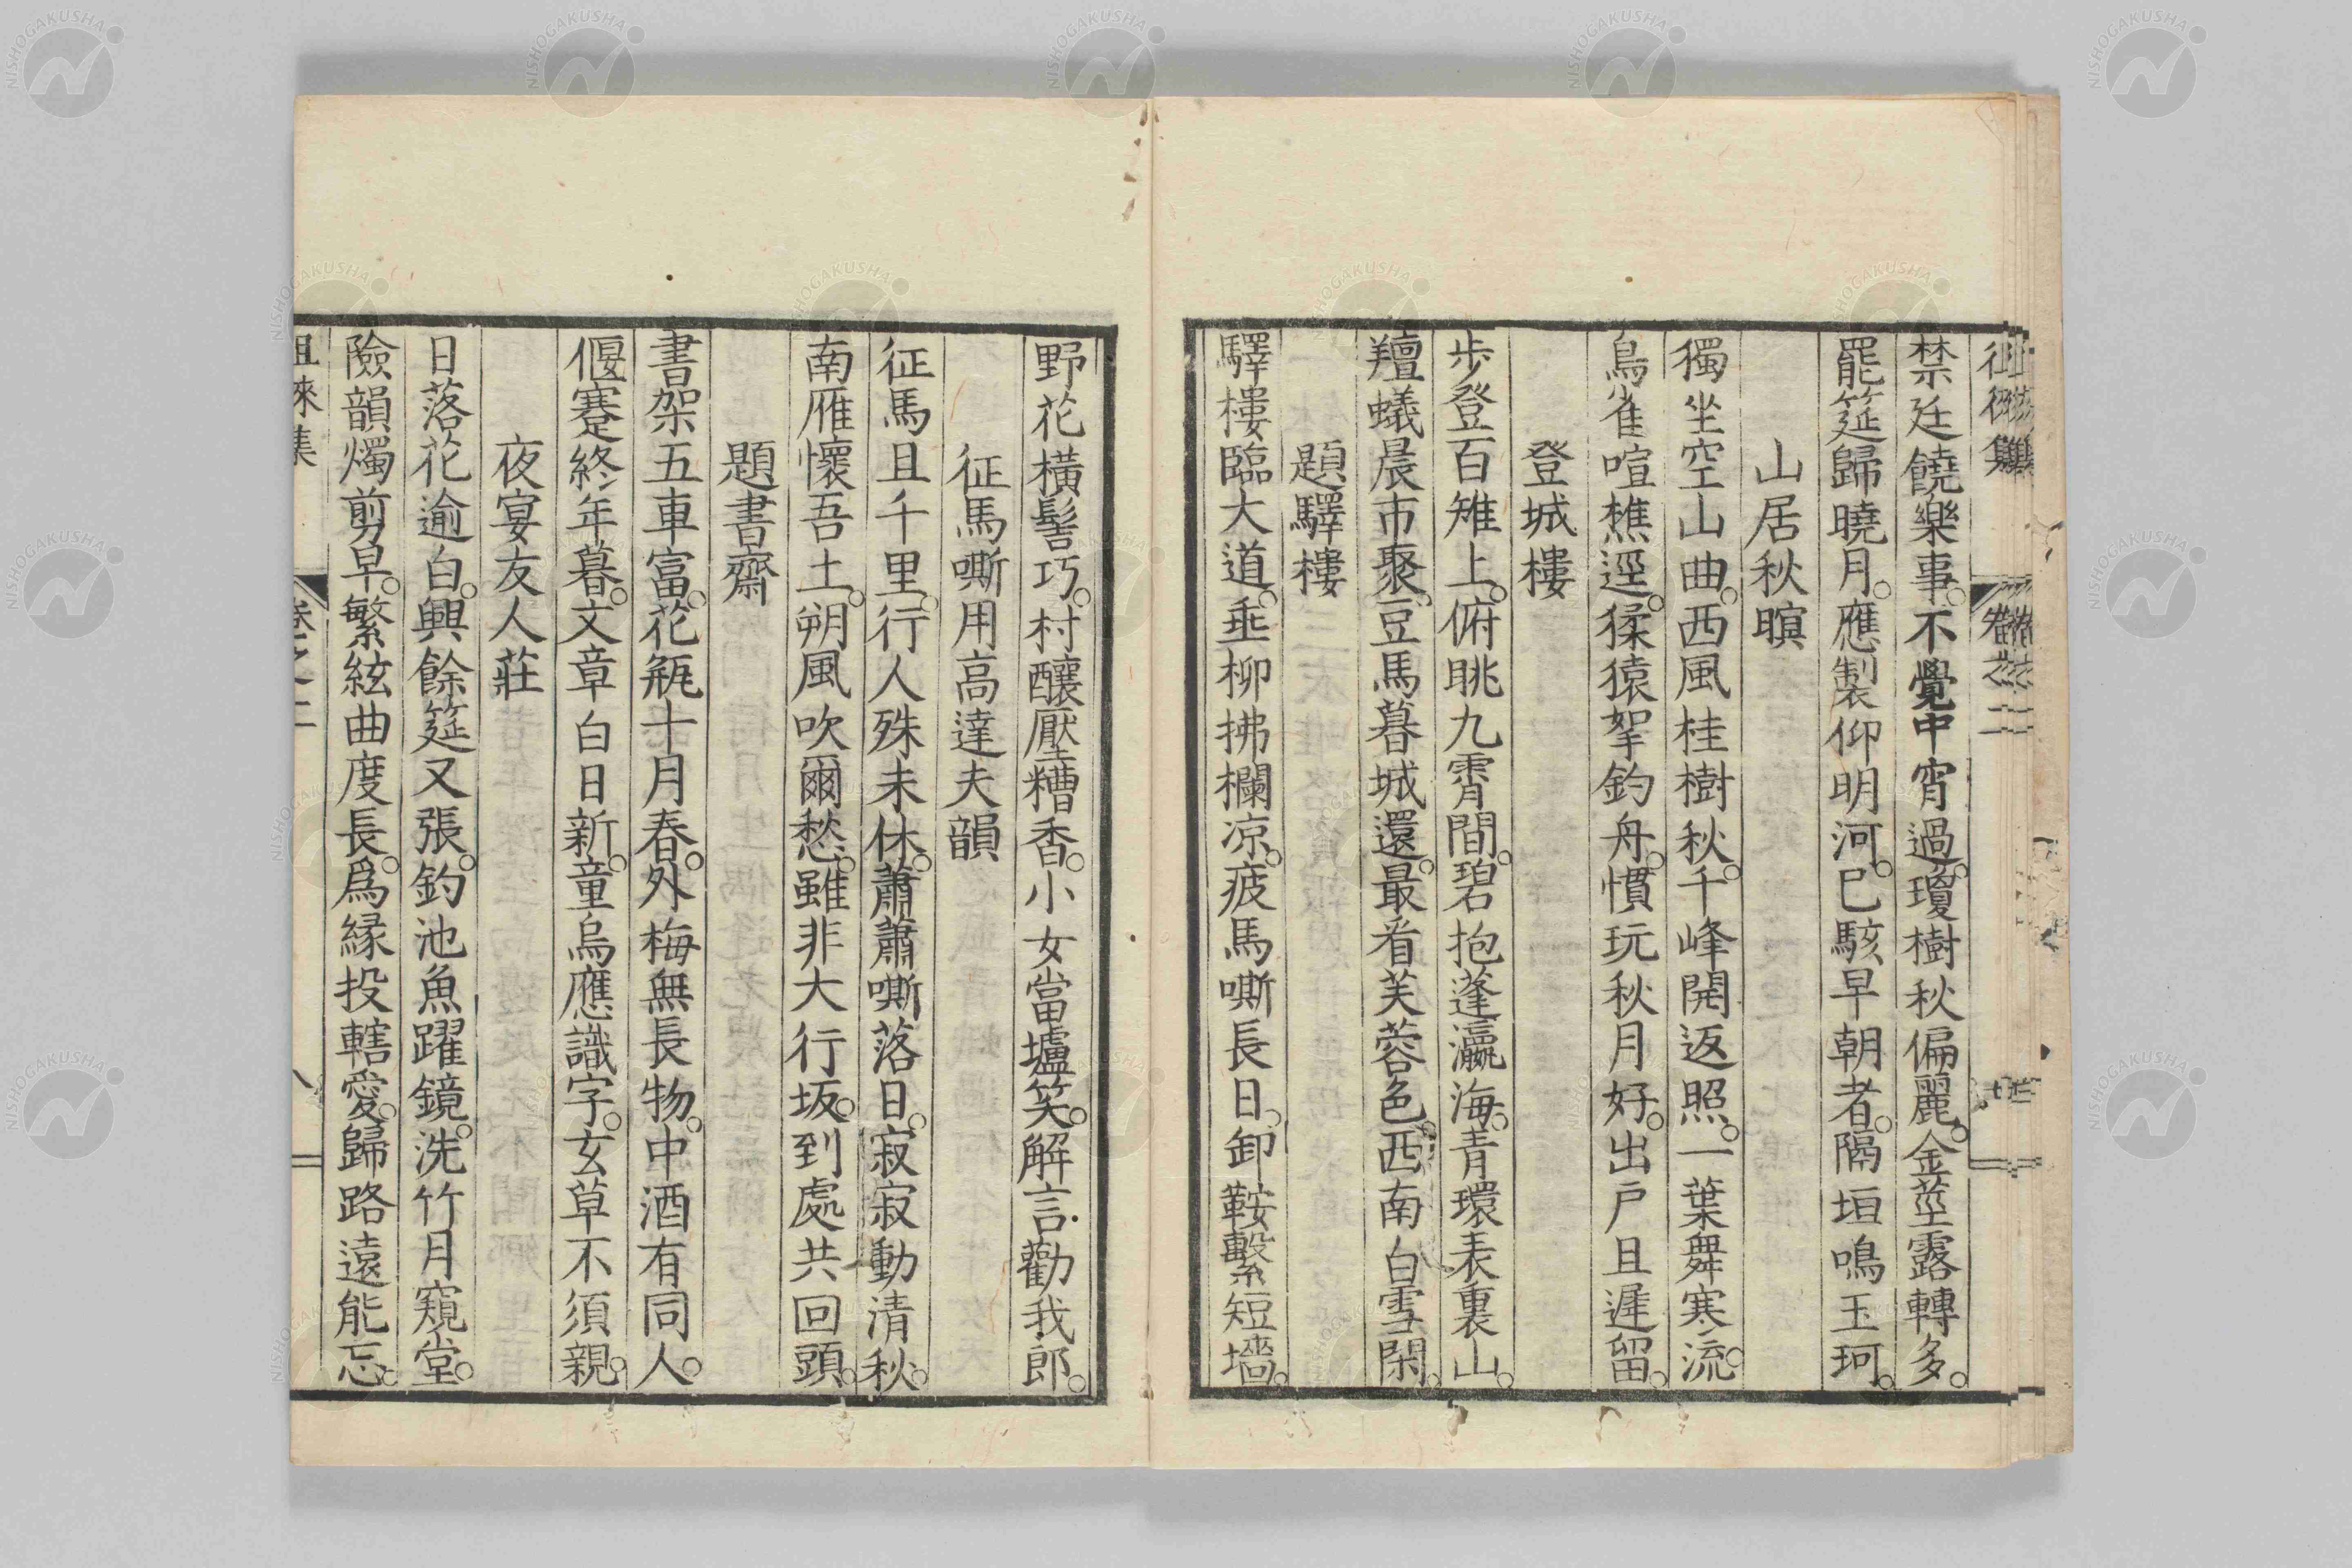 禁廷饒樂事。不覺中宵過。瓊樹秋偏麗。金莖露轉多。
罷筵歸曉月。應製仰明河。已駭早朝者。隔垣鳴玉珂。
山居秋暝
獨坐空山曲。西風桂樹秋。千峰開返照。一葉舞寒流。
鳥雀喧樵逕。猱猿挐釣舟。慣玩秋月好。出戶且遲留。
登城樓
步登百雉上。俯眺九霄間。碧抱蓬瀛海。青環表裏山。
羶蟻晨市聚。豆馬暮城還。最看芙蓉色。西南白雪閑。
題驛樓
驛樓臨大道。垂柳拂欄凉。疲馬嘶長日。卸鞍繫短墻。
野花橫髻巧。村釀壓糟香。小女當壚笑。解言勸我郎。
征馬嘶用高達夫韻
征馬且千里。行人殊未休。蕭蕭嘶落日。寂寂動清秋。
南雁懷吾土。朔風吹爾愁。雖非大行坂。到處共回頭。
題書齋
書架五車富。花瓶十月春。外梅無長物。中酒有同人。
偃蹇終年暮。文章白日新。童烏應識字。玄草不須親。
夜宴友人莊
日落花逾白。興餘筵又張。釣池魚躍鏡。洗竹月窺堂。
險韻燭剪早。繁絃曲度長。爲緣投轄愛。歸路遠能忘。
徂徠集 卷之二
NISHOGAKUSHA